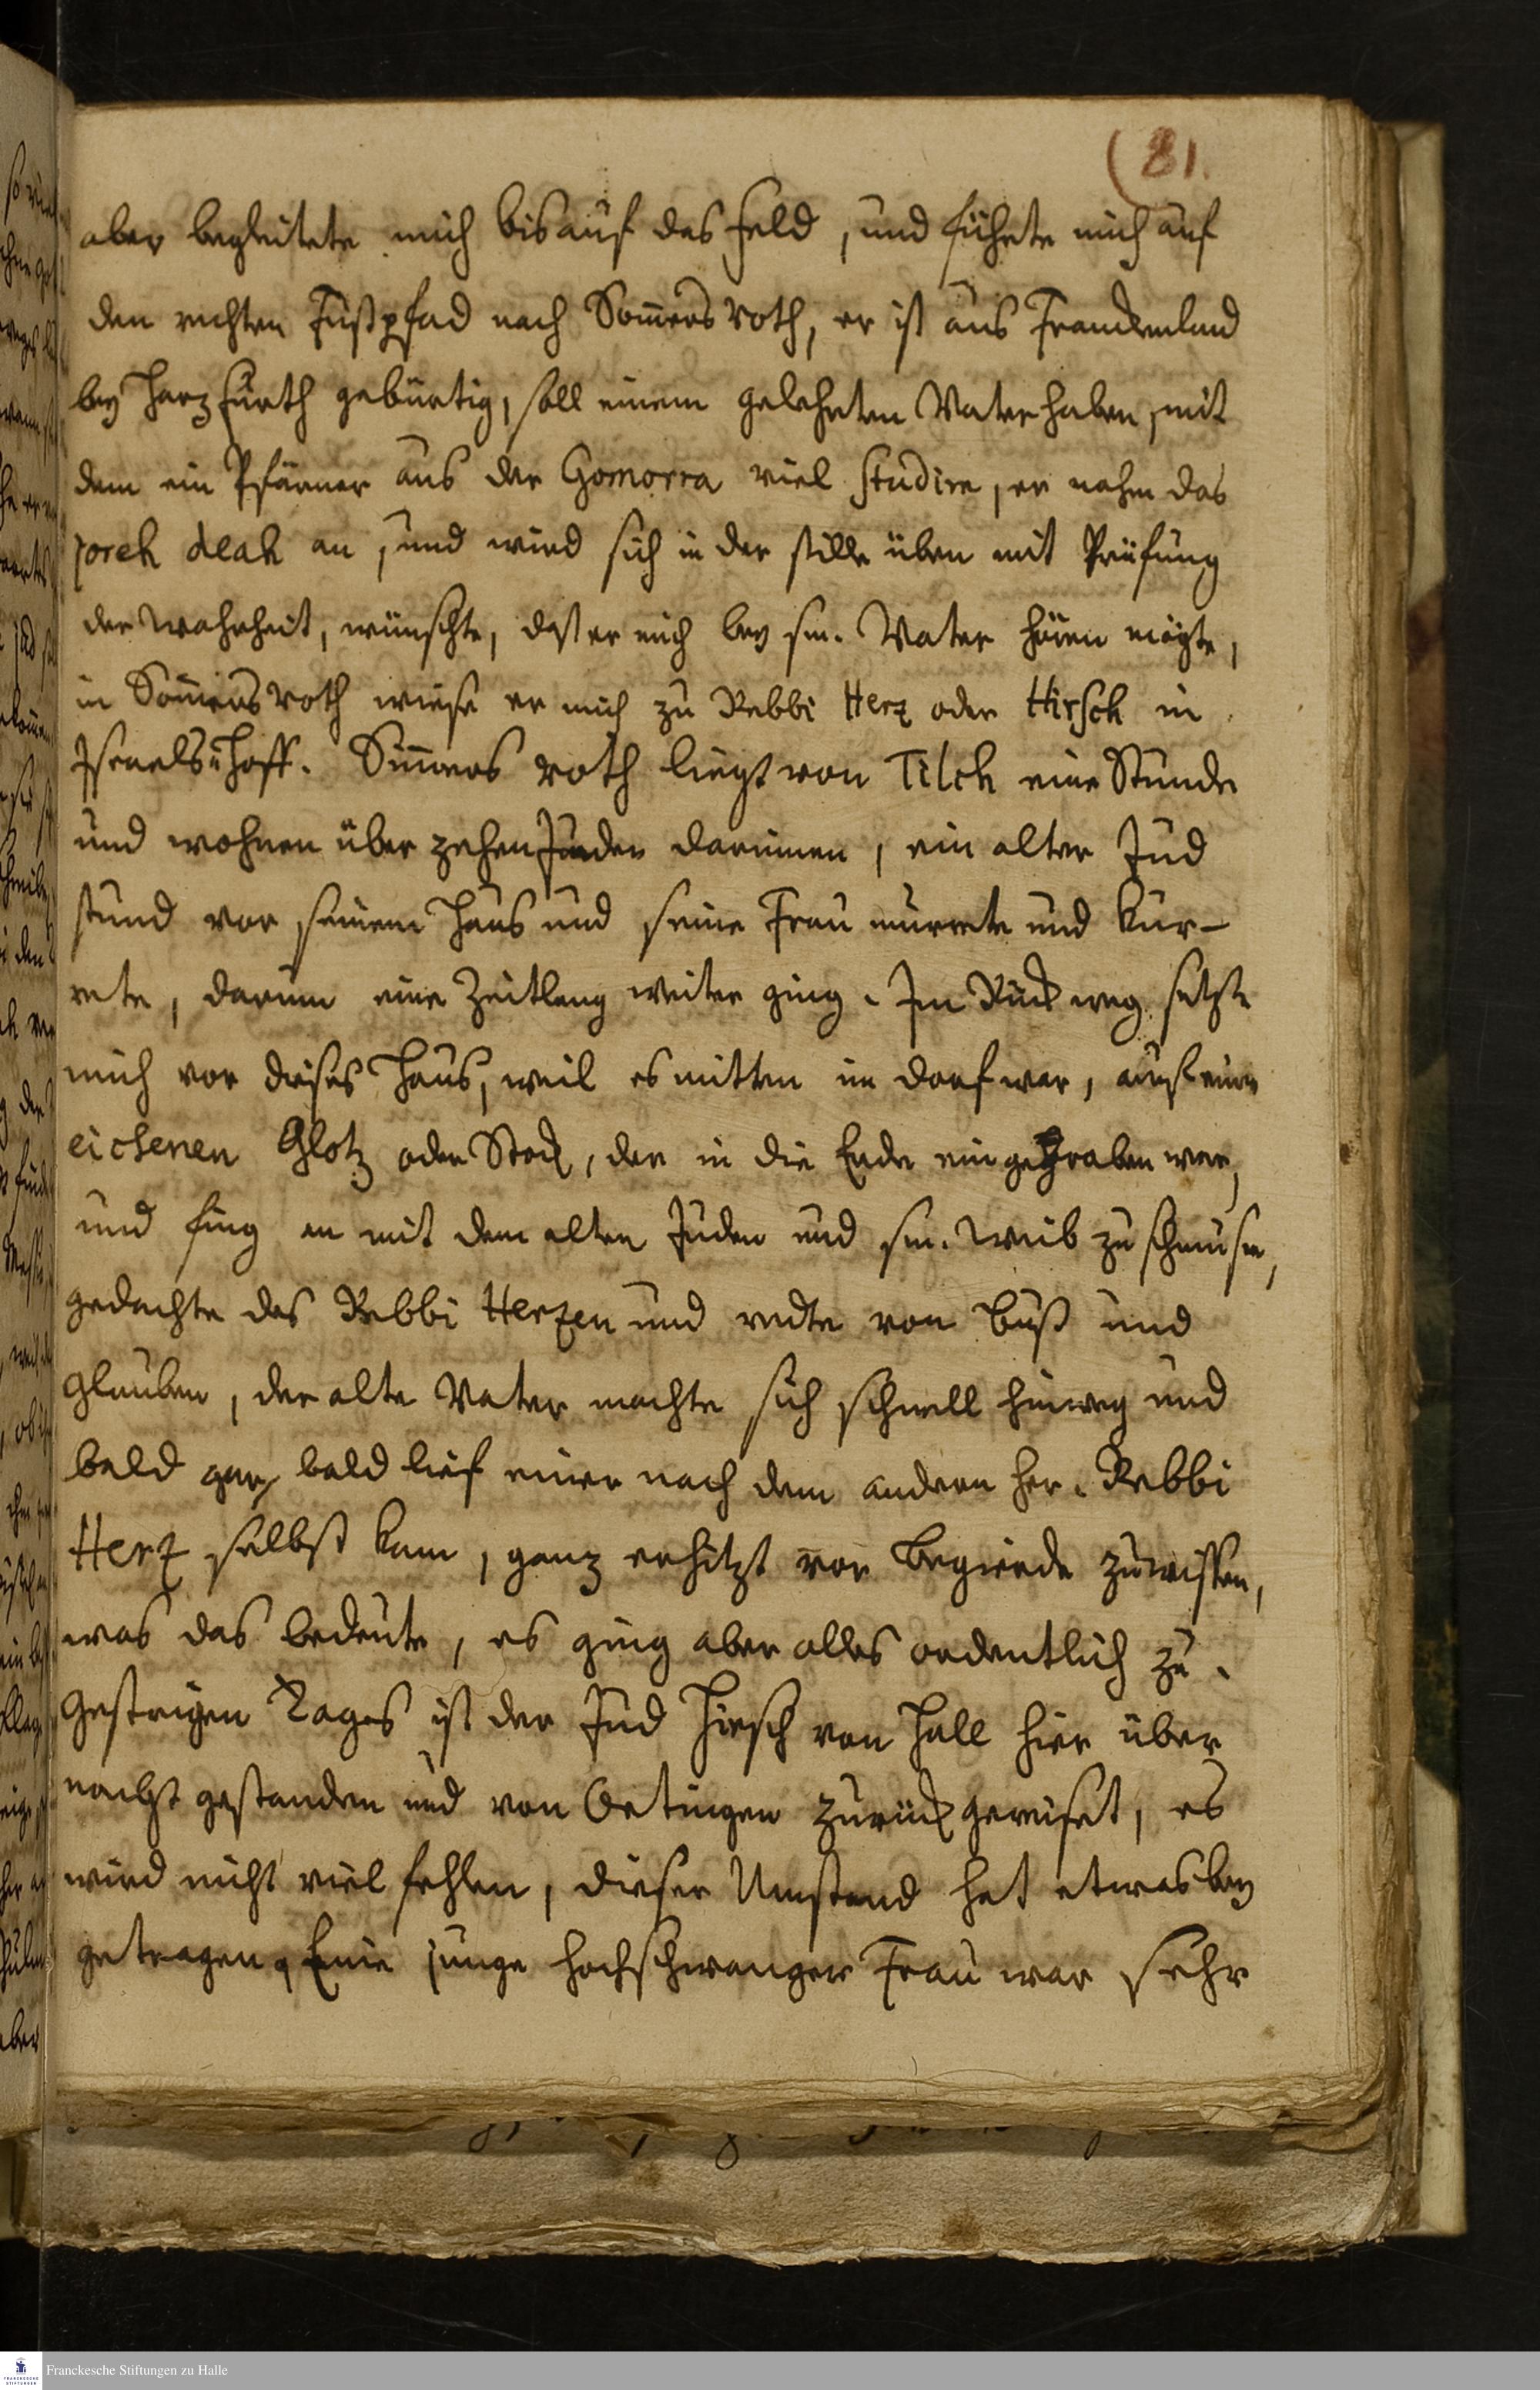 (81.
aber begleitete mich bis auf das Feld, und führte mich auf
den rechten Fußpfad nach Som̄ers roth, er ist aus Franckenland
bey Harz fürth gebürtig, soll einem gelehrten Vater haben, mit
dem ein Pfärrner aus der Gomorra viel studire, er nahm das
joreh deah an, und wird sich in der stille üben mit Prüfung
der Wahrheit, wünschte, daß er mich bey sm. Vater hören mögte,
in Som̄ers roth wiese er mich zu Rebbi Herz oder Hirsch in
Israels Hoff. Som̄ers roth liegt von Tilch eine Stunde
und wohnen über zehen Juden darinnen, ein alter Jud
stund vor seinem Haus und seine Frau murrete und kur-
rete, darum eine Zeitlang weiter ging. Im Rückweg setzte
mich vor dieses Haus, weil es mitten im dorf war, auf einen
eichenen Glotz oder Stock, der in die Erde eingegraben war,
und fing an mit dem alten Juden und sm. Weib zu schmusen,
gedachte des Rebbi Herzen und redte von Buß und
glauben, der alte Vater machte sich schnell hinweg und
bald gar bald lief einer nach dem andern her. Rebbi
Herz selbst kam, ganz erhitzt vor Begierde zu wissen,
was das bedeute, es ging aber alles ordentlich zu.
Gestrigen Tages ist der Jud Hirsch von Hall hier über
nacht gestanden und von Oetingen zurück gereiset, es
wird nicht viel fehlen, dieser Umstand hat etwas bey
getragen, Eine junge hochschwanger Frau war sehr
Franckesche Stiftungen zu Halle